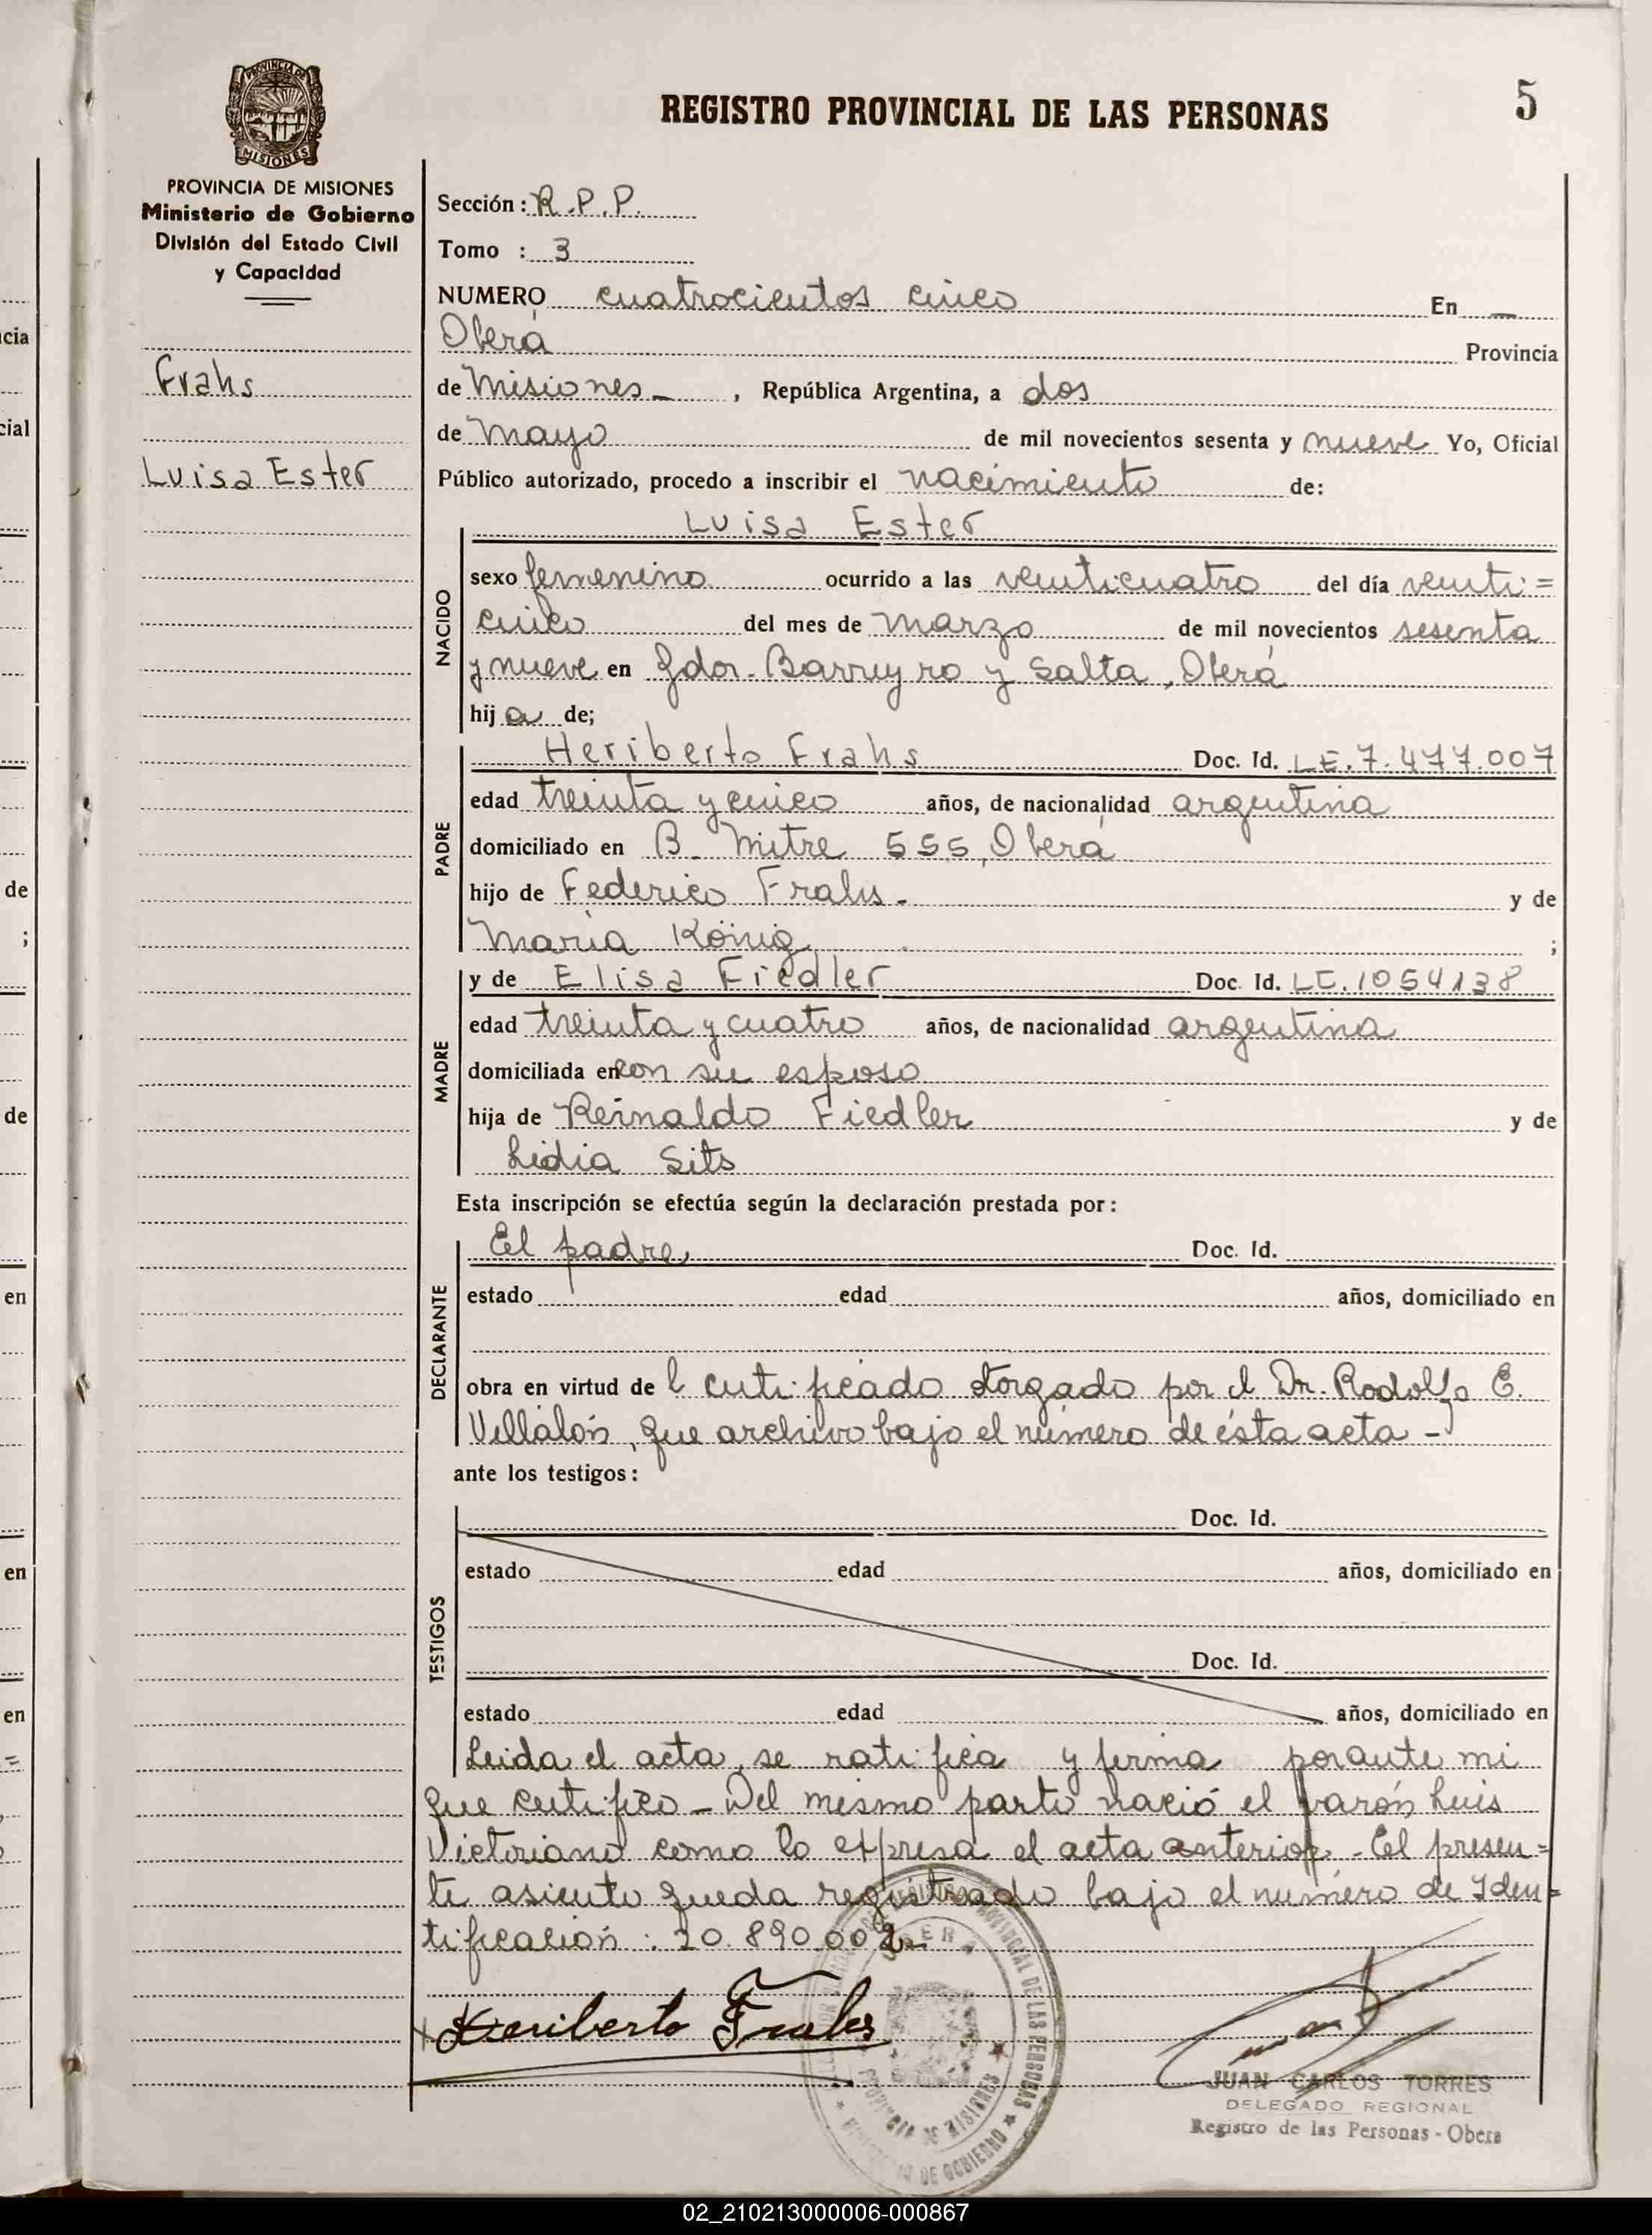 5
REGISTRO PROVINCIAL DE LAS PERSONAS
PROVINCIA DE MISIONES
MISIONES
PROVINCIA DE MISIONES
Ministerio de Gobierno
División del Estado Civil
y Capacidad
Frahs
Luisa Ester
Sección: R.P.P.
Tomo : 3
NUMERO cuatrocientos cinco En
Oberá Provincia
de Misiones , República Argentina, a dos
de Mayo de mil novecientos sesenta y nueve Yo, Oficial
Público autorizado, procedo a inscribir el nacimiento de:
Luisa Ester
NACIDO
sexo femenino ocurrido a las veinticuatro del día veinti=
cinco del mes de marzo de mil novecientos sesenta
y nueve en Gdor. Barreyro y Salta, Oberá
hija de;
PADRE
Heriberto Frahs Doc. Id. LE. 7.477.007
edad treinta y cinco años, de nacionalidad argentina
domiciliado en B. Mitre 555, Oberá
hijo de Federico Frahs - y de
María König ;
MADRE
y de Elisa Fiedler Doc. Id. LC. 1054138
edad treinta y cuatro años, de nacionalidad argentina
domiciliada en con su esposo
hija de Reinaldo Fiedler y de
Lidia Sits
Esta inscripción se efectúa según la declaración prestada por:
DECLARANTE
El padre Doc. Id.
estado edad años, domiciliado en
obra en virtud del certificado otorgado por el Dr. Rodolfo E.
Villalón, que archivo bajo el número de ésta acta -
ante los testigos:
TESTIGOS
Doc. Id.
estado edad años, domiciliado en
Doc. Id.
estado edad años, domiciliado en
Leida el acta, se ratifica y firma por ante mi
que certifico - Del mismo parto nació el varón Luis
Victoriano como lo expresa el acta anterior. - El presen=
te asiento queda registrado bajo el número de Iden=
tificación: 20.890.002
Heriberto Frahs
OBERA
REGISTRO PROVINCIAL DE LAS PERSONAS
PROVINCIA DE MISIONES
MINISTERIO DE GOBIERNO
JUAN CARLOS TORRES
DELEGADO REGIONAL
Registro de las Personas - Obera
ncia
cial
de
;
de
en
en
en
02_210213000006-000867